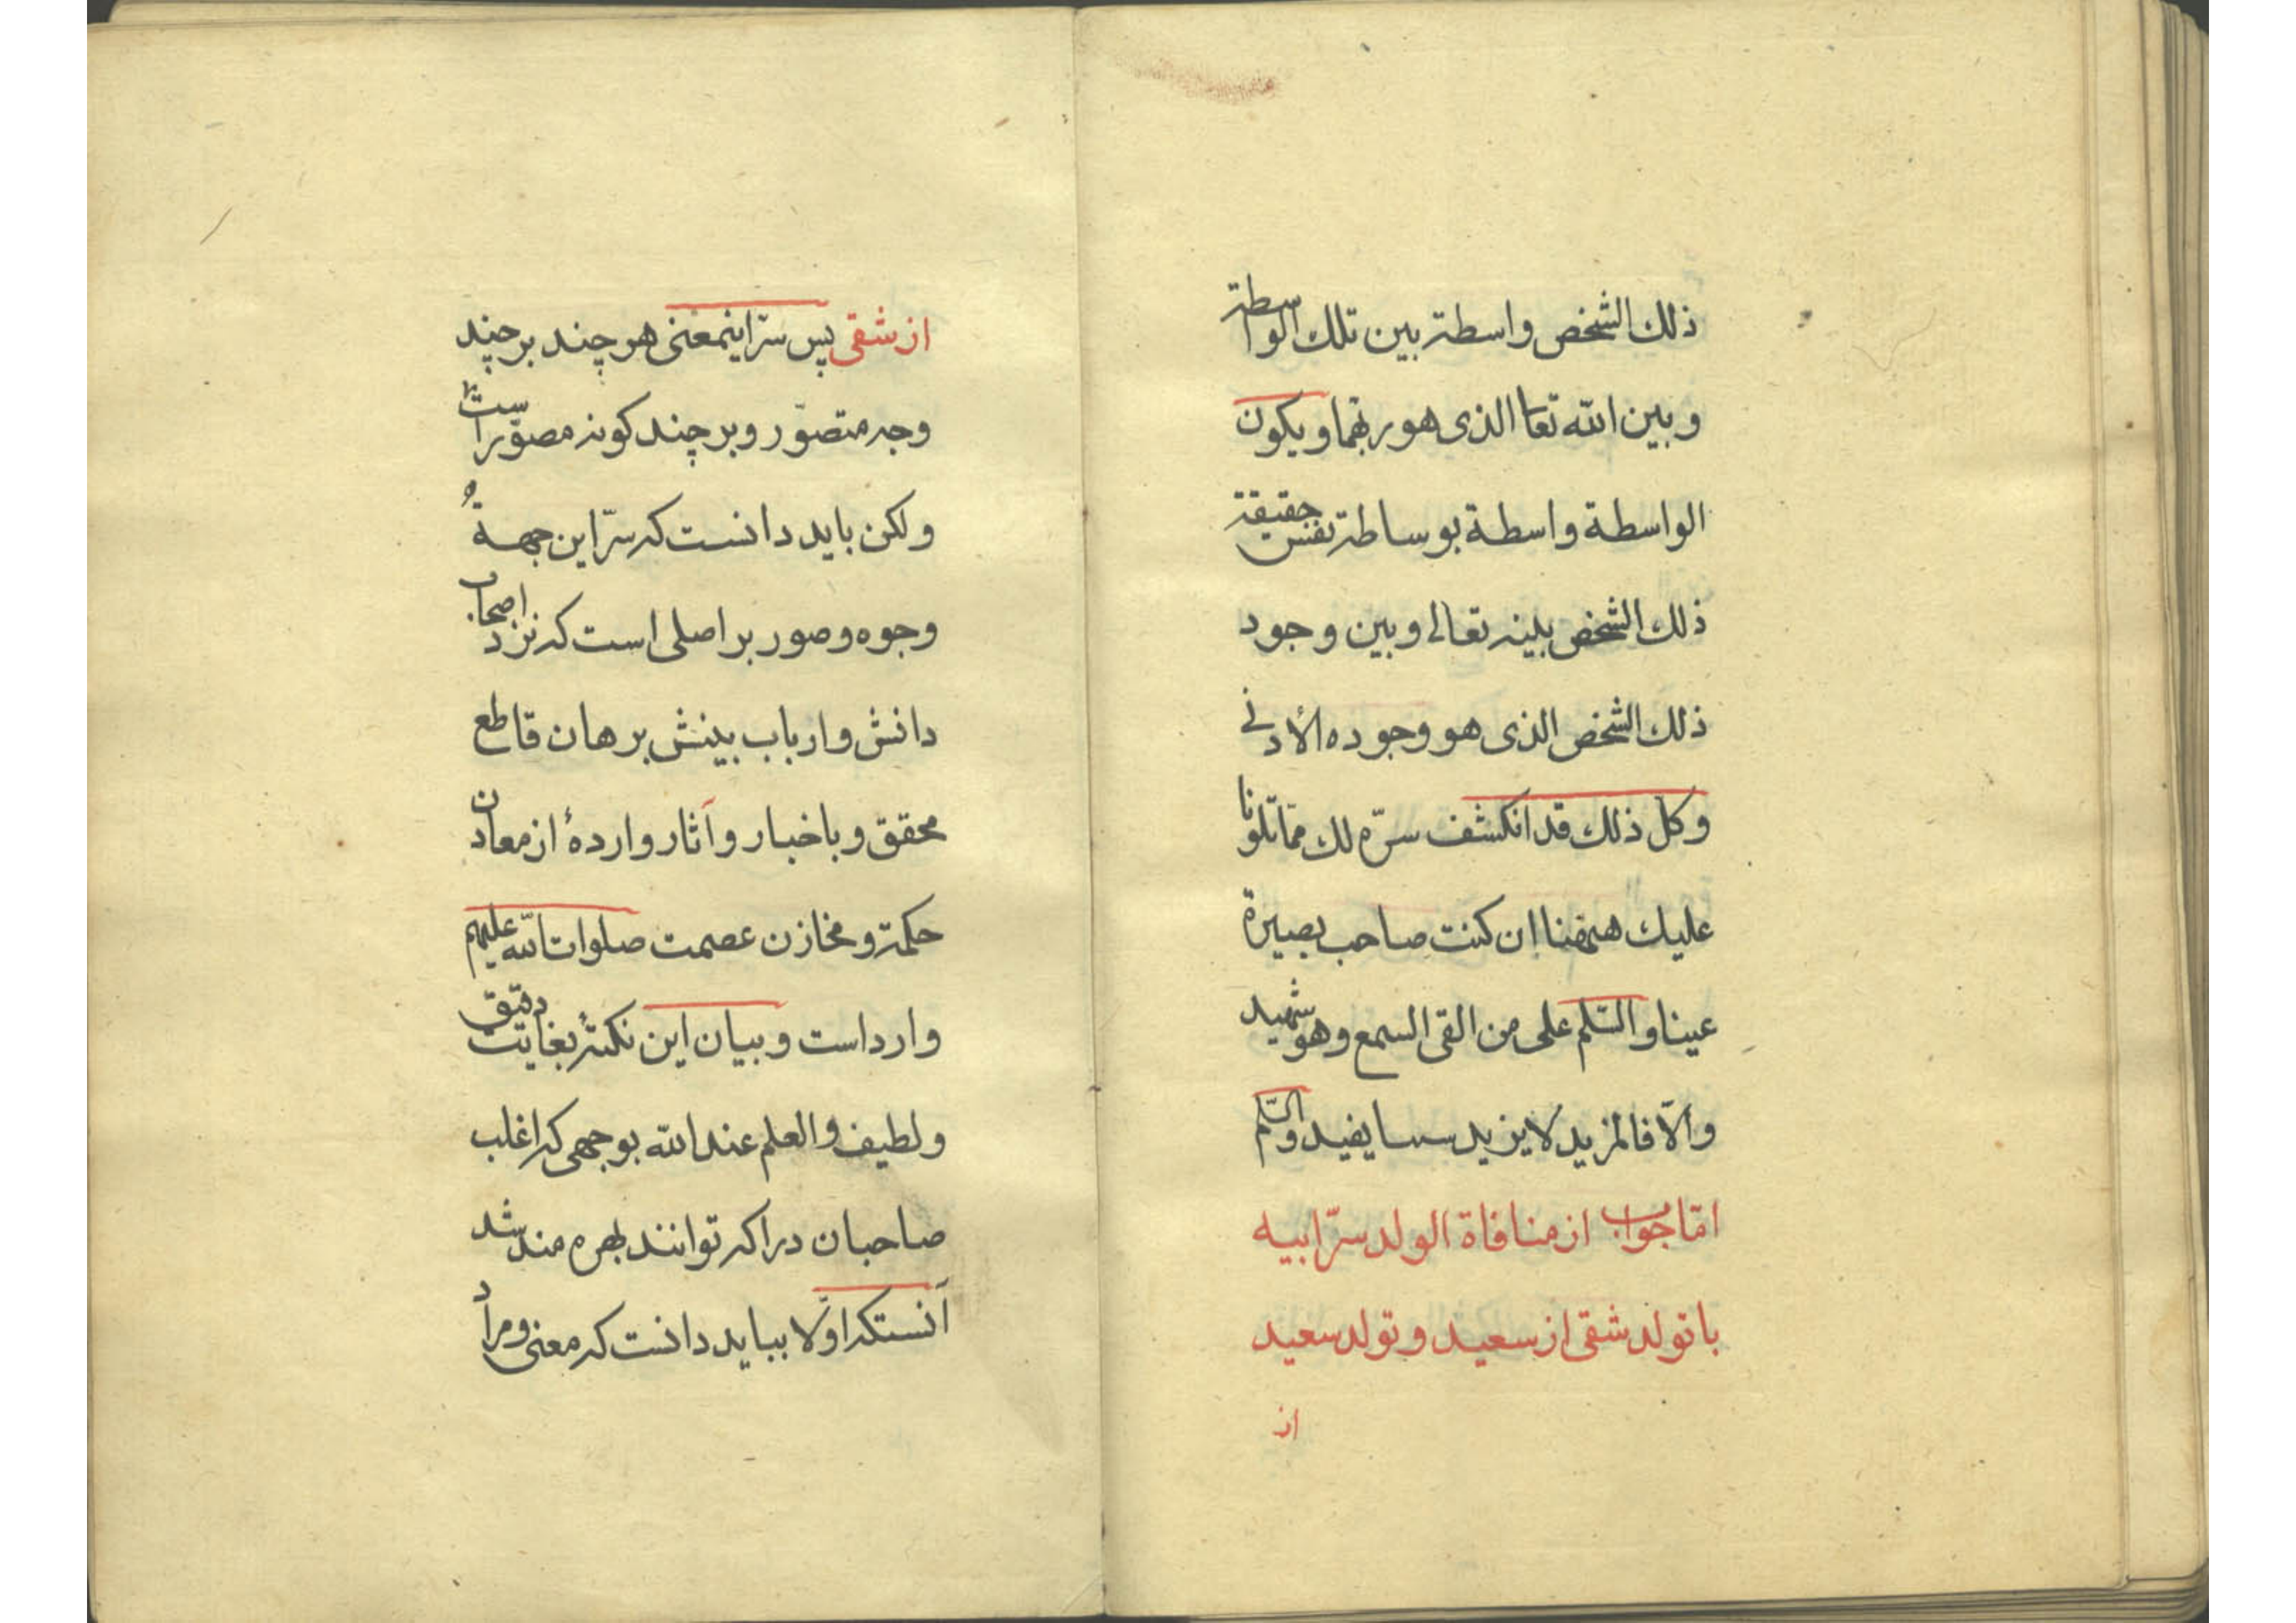 ذلك الشخص واسطة بين تلك الواسطة
و بين الله تعا الذى هو ربهما و يكون
الواسطة واسطة بوساطة نفس حقيقة
ذلك الشخص بينه تعالى و بين وجود
ذلك الشخص الذى هو وجوده الأدنى
و كل ذلك قد انكشف سرّه لك ممّا تلونا
عليك ههنا ان كنت صاحب بصيرة
عينا و السّلم على من القى السمع و هو شهيد
و الّا فالمزيد لا يزيد يفيد و السّلم
امّا جواب از منافاة الولد سرّ ابيه
با تولد شقى از سعيد و تولد سعيد
از
از شقى پس سرّ اينمعنى هر چند بر چند
وجه متصوّر و بر چند كونه مصوّر است
و لكن بايد دانست كه سرّ اين جهة
وجوه و صور بر اصلى است كه نزد اصحاب
دانش و ارباب بينش برهان قاطع
محقق و باخبار و آثار واردهٔ از معادن
حكمة و مخازن عصمت صلوات الله عليهم
وارد است و بيان اين نكتهٔ بغايت دقيق
و لطيف و العلم عند الله بوجهى كه اغلب
صاحبان دراكه توانند بهره مند شد
آنستكه اوّلا ببايد دانست كه معنى و مراد